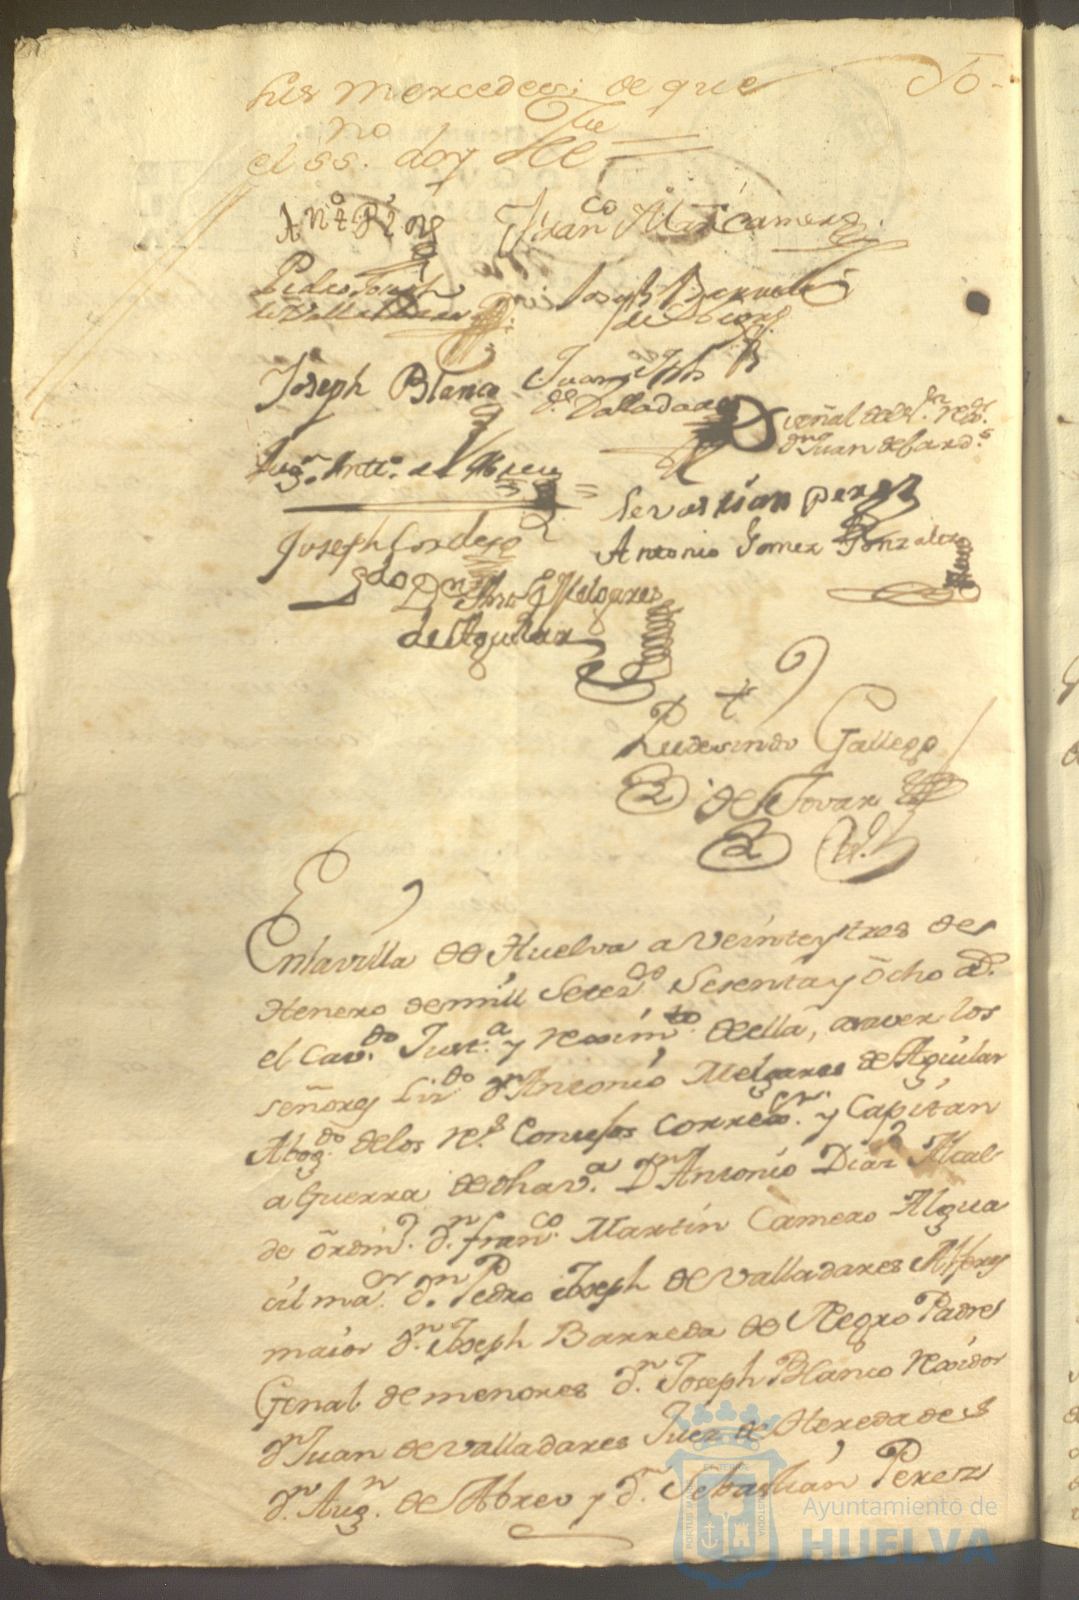 sus mercedes de que Yo
el ss.no doy Fee
Ant.o Diaz Fran.co Martin Camero
Pedro Joseph de Valladares
Joseph Barreda de Negro
Joseph Blanco Juan Jph de Valladares
señal del s.r rex.or d.n Juan de
Aug.n Antt.o de Abreu
Sevastian perez
Joseph Cordero
Antonio Gomez Gonzalez
Ldo Dn Anto Melgares
de Aguilar
Rudesindo Gallego
de Tovar
En la villa de Huelva a veinte y tres de
Henero de mill Setez.do Sesenta y ocho a.s
el Cav.do Just.a y rexim.to de ella, a saver los
señores Liz.do d.n Antonio Melgares de Aguilar
Abog.do de los r.s Consejos Correx.or y Capitan
a Guerra de dha v.a D.n Antonio Diaz Alcal
de ordin.o d.n Fran.co Martin Camero Algua
cil ma.or d.n Pedro Joseph de Valladares Alferez
maior d.n Joseph Barreda de Negro Padre
Genal de menores d.n Joseph Blanco rexidor
d.n Juan de Valladares Juez de Heredades
d.n Aug.n de Abreo y d.n Sebastian Perez
Ayuntamiento de
HUELVA